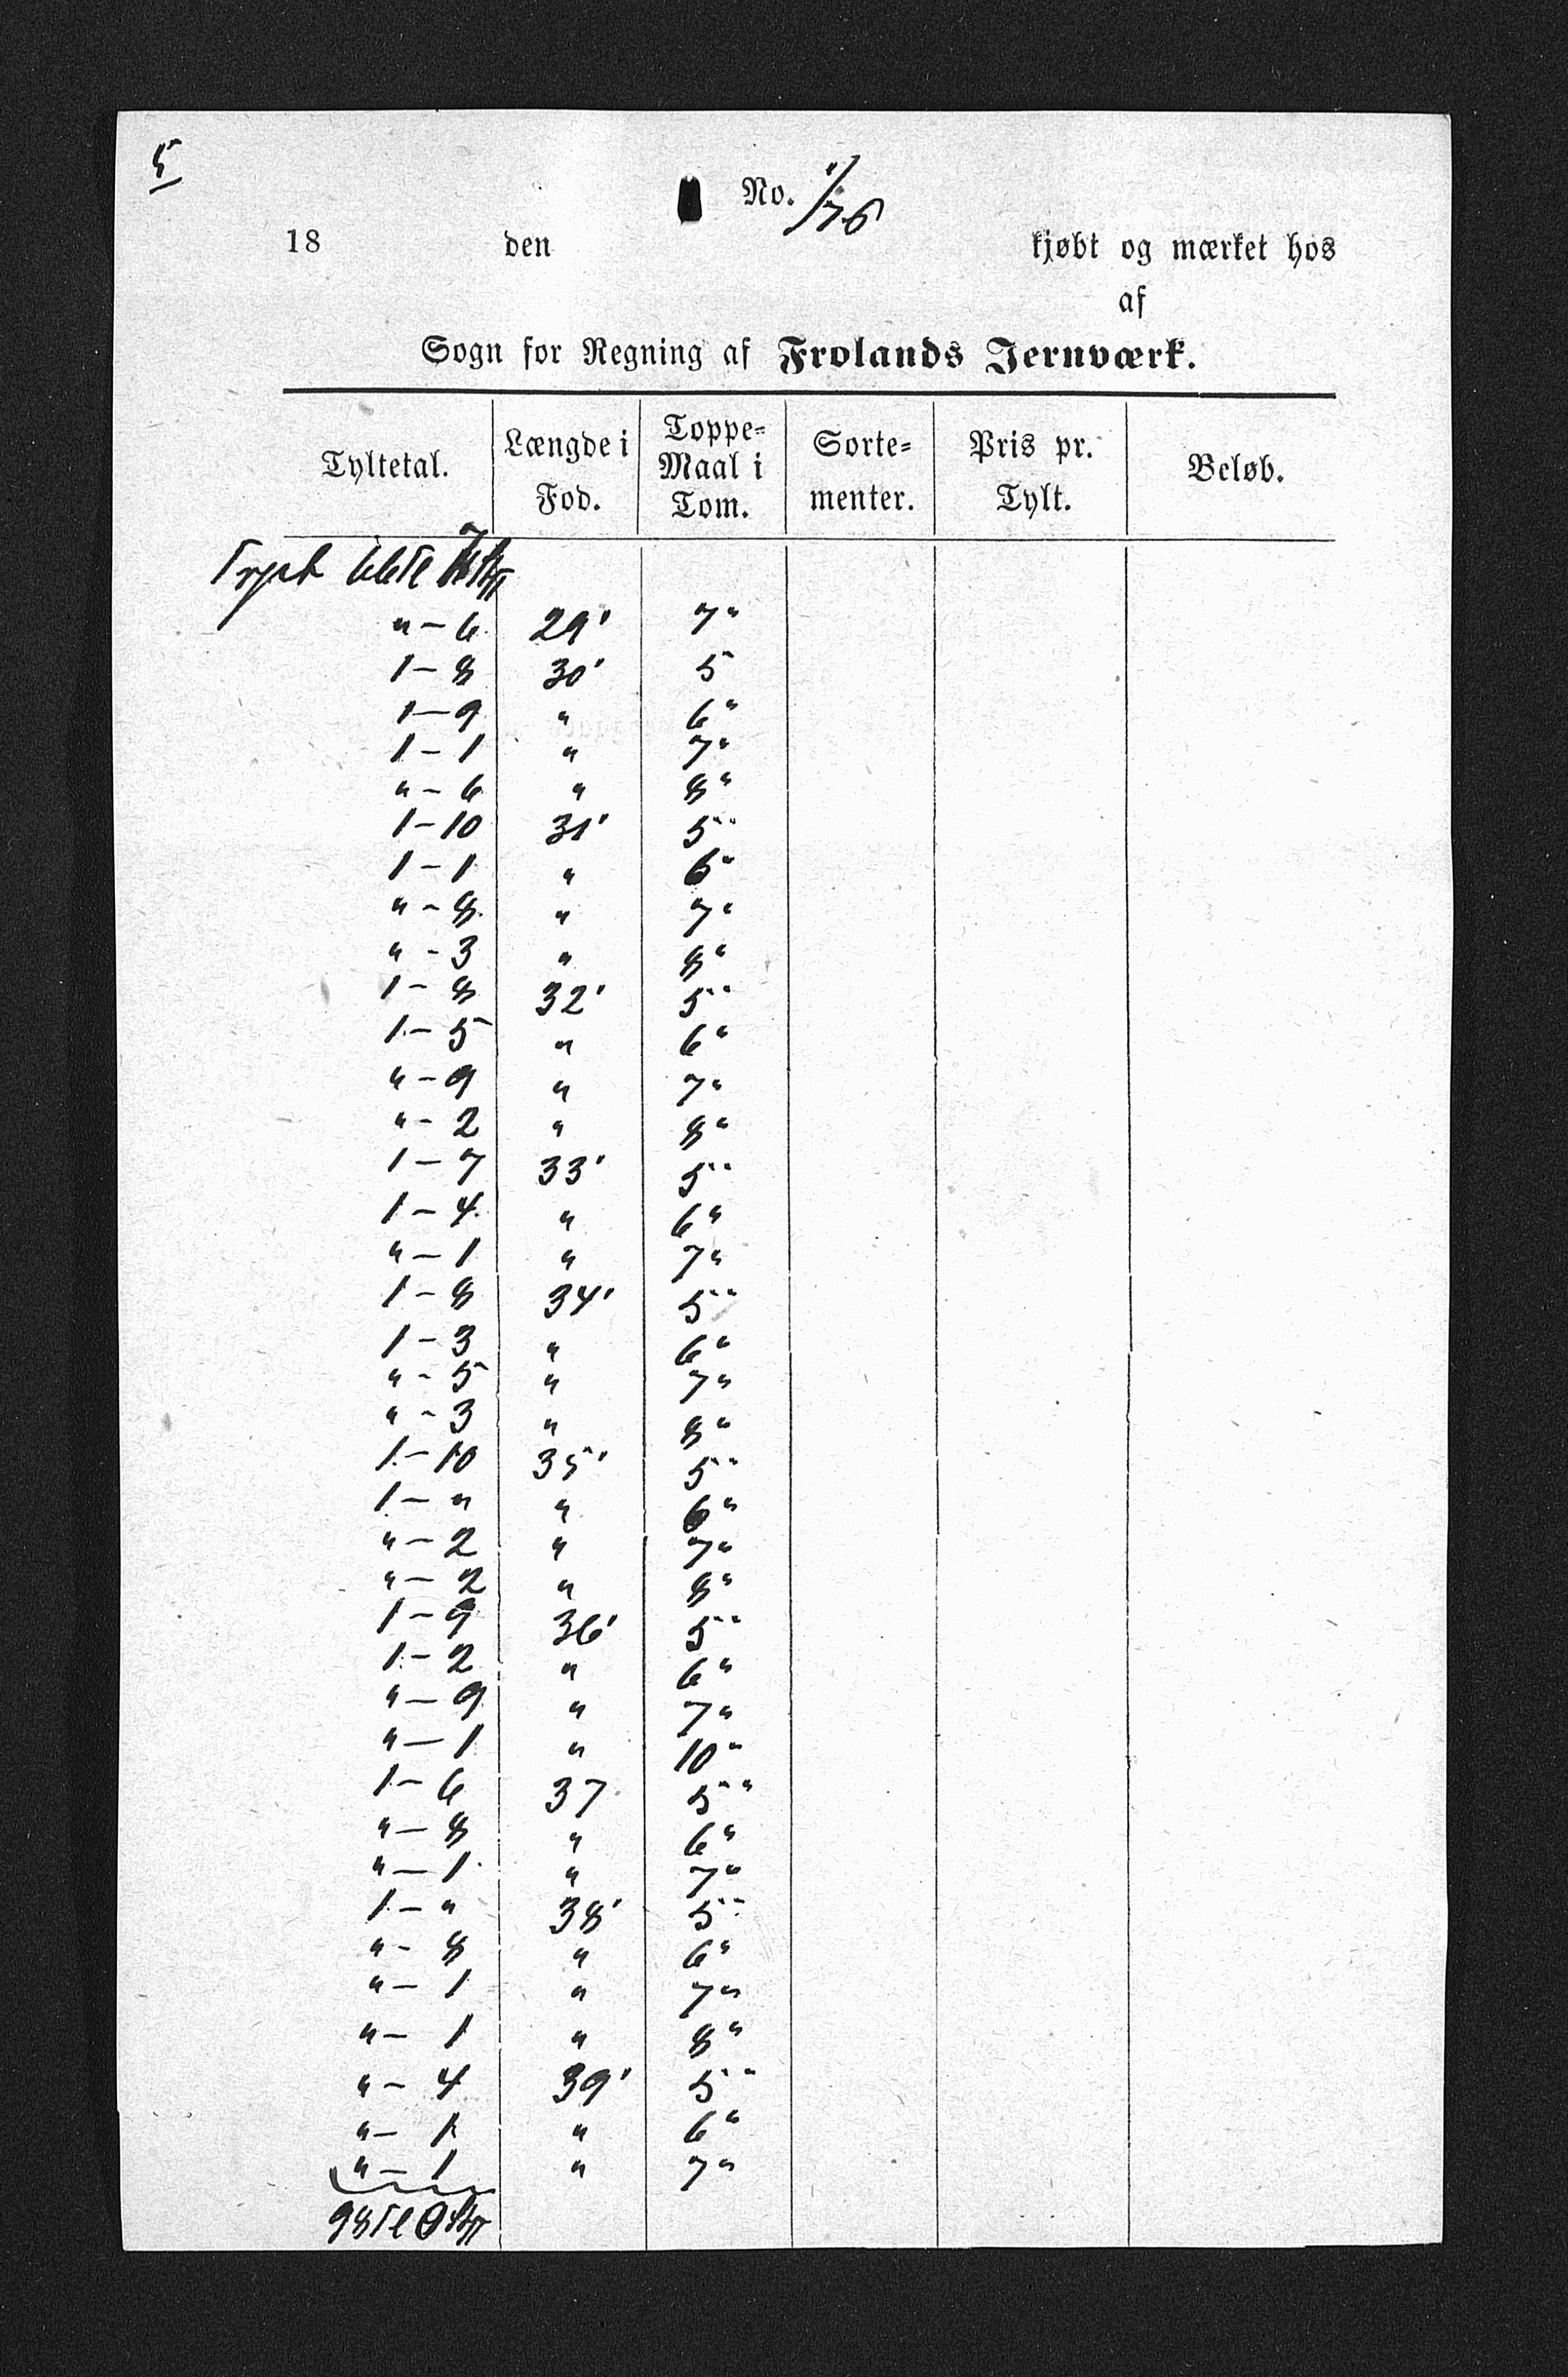 5
No. "/76
18 den kjøbt og mærket hos
af
Sogn for Regning af Frolands Jernværk.
Tyltetal. Længde i Fod. Toppe-Maal i Tom. Sorte-menter. Pris pr. Tylt. Beløb.
66 Tl
" – 6 29' 7"
1 – 8 30' 5
1 – 9 " 6"
1 – 1 " 7"
" – 6 " 8"
1 – 10 31' 5"
1 – 1 " 6"
" – 8 " 7"
" – 3 " 8"
1 – 8 32' 5"
1 – 5 " 6"
" – 9 " 7"
" – 2 " 8"
1 – 7 33' 5"
1 – 4 " 6"
" – 1 " 7"
1 – 8 34' 5"
1 – 3 " 6"
" – 5 " 7"
" – 3 " 8"
1 – 10 35' 5"
1 – " " 6"
" – 2 " 7"
" – 2 " 8"
1 – 9 36' 5"
1 – 2 " 6"
" – 9 " 7"
" – 1 " 10"
1 – 6 37 5"
" – 8 " 6"
" – 1 " 7"
1 – " 38' 5"
" – 8 " 6"
" – 1 " 7"
" – 1 " 8"
" – 4 39' 5"
" – 1 " 6"
" – 1 " 7"
98 Tl 0 Stk